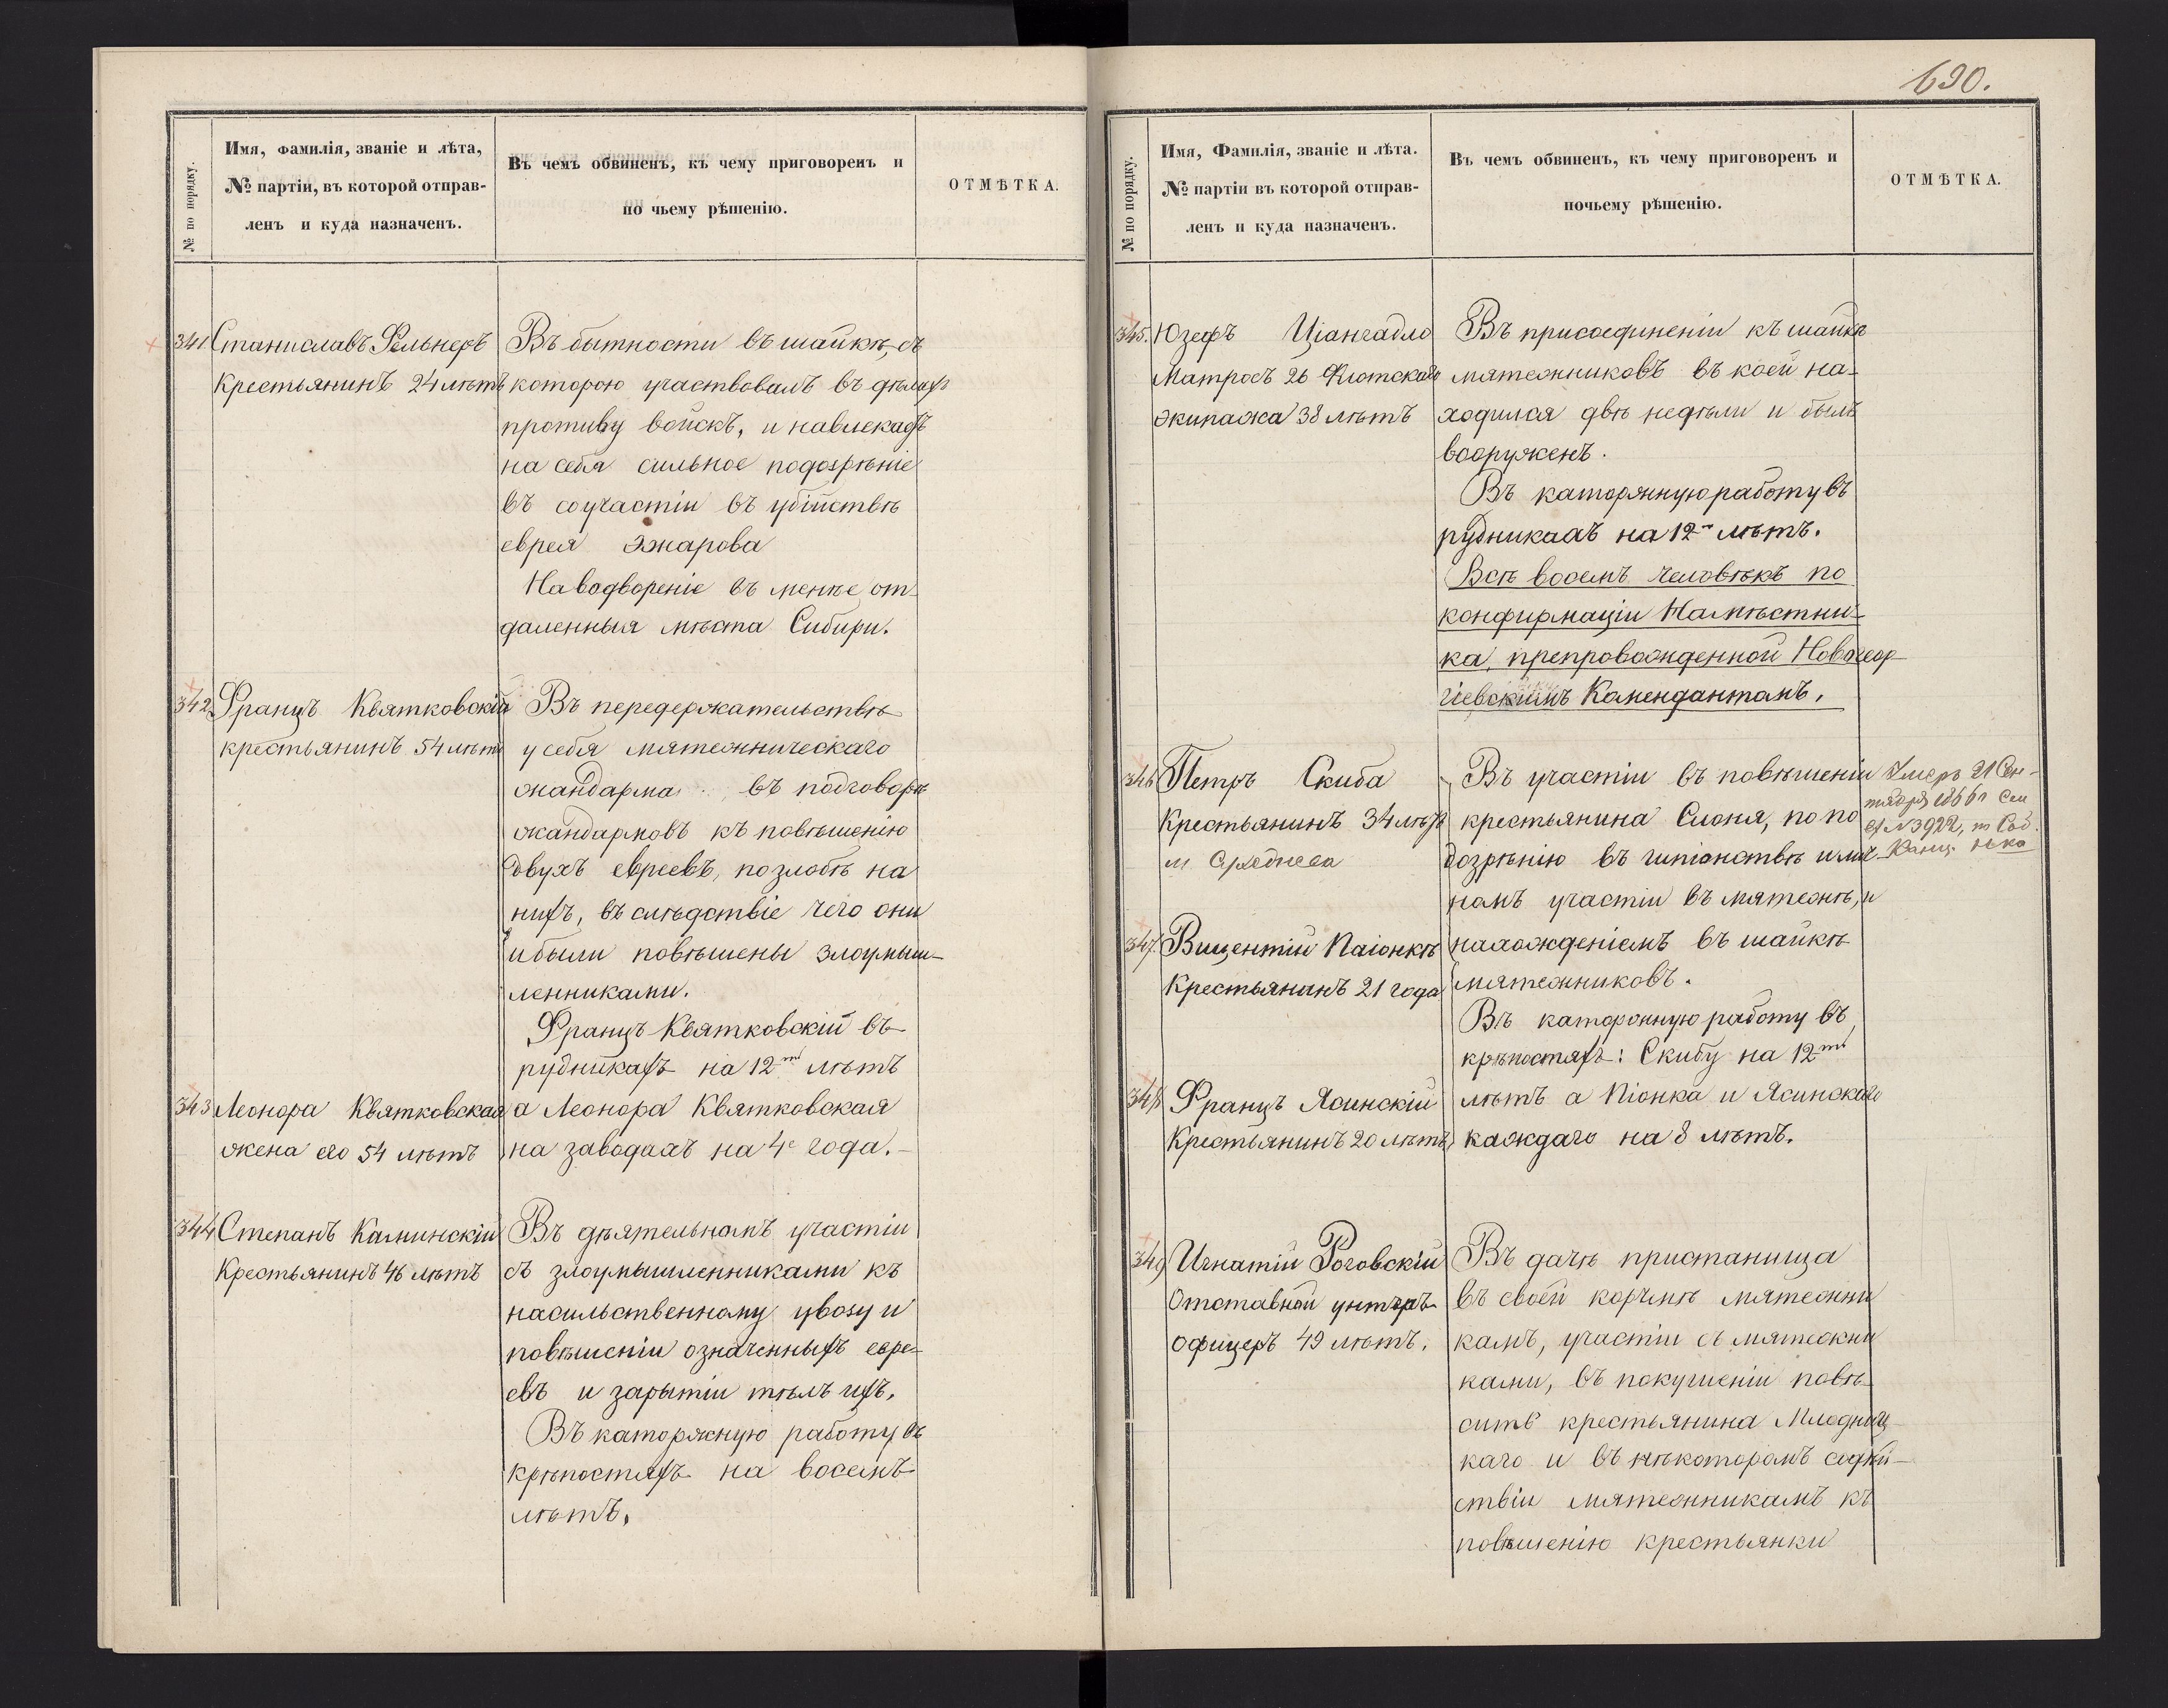 690.
№ по порядку.
Имя, фамилія, званіе и лѣта,
№ партіи, въ которой отправ-
ленъ и куда назначенъ.
Въ чемъ обвиненъ, къ чему приговоренъ и
по чьему рѣшенію.
ОТМѢТКА.
341
Станиславъ Фельнеръ
Крестьянинъ 24 лѣтъ
Въ бытности въ шайкѣ, съ
которою участвовалъ въ дѣлахъ
противу войскъ, и навлекаетъ
на себя сильное подозрѣніе
въ соучастіи въ убійствѣ
еврея Эжарова
На водвореніе въ менѣе от-
даленныя мѣста Сибири.
342
Францъ Квятковскій
крестьянинъ 54 лѣтъ
Въ передержательствѣ
у себя мятежническаго
жандарма въ подговорѣ
жандармовъ къ повѣшенію
двухъ евреевъ, по злобѣ на
нихъ, въ слѣдствіе чего они
и были повѣшены злоумыш-
ленниками.
Францъ Квятковскій въ
рудникахъ на 12ть лѣтъ
343
Леонора Квятковская
жена его 54 лѣтъ
а Леонора Квятковская
на заводахъ на 4е года.-
344
Степанъ Каминскій
Крестьянинъ 46 лѣтъ
Въ дѣятельномъ участіи
съ злоумышленниками къ
насильственному увозу и
повѣшеніи означенныхъ евре-
евъ и зарытіи тѣлъ ихъ.
Въ каторжную работу въ
крѣпостяхъ на восемь
лѣтъ.
№ по порядку.
Имя, Фамилія, званіе и лѣта.
№ партіи въ которой отправ-
ленъ и куда назначенъ.
Въ чемъ обвиненъ, къ чему приговоренъ и
почьему рѣшенію.
ОТМѢТКА.
345.
Юзефъ Ціангадло
Матросъ 26 Флотскаго
экипажа 38 лѣтъ
Въ присоединеніи къ шайкѣ
мятежниковъ въ коей на-
ходился двѣ недѣли и былъ
вооруженъ.
Въ каторжную работу въ
рудникахъ на 12ть лѣтъ.
Всѣ восемь человѣкъ по
конфирмаціи Намѣстни-
ка, препровожденной Новогеор-
гіевскимъ Комендантомъ.
346
Петръ Скиба
Крестьянинъ 34 лѣтъ
Въ участіи въ повѣшеніи
крестьянина Слоня, по по
дозрѣнію въ шпіонствѣ и лич-
номъ участіи въ мятежѣ, и
Умеръ 21 Сен-
тября 1866 г
№ 3922,
347
Вицентій Піонкъ
Крестьянинъ 21 года
нахожденіемъ въ шайкѣ
мятежниковъ.
Въ каторжную работу въ
крѣпостяхъ: Скибу на 12ть
348
Францъ Ясинскій
Крестьянинъ 20 лѣтъ
лѣтъ а Піонка и Ясинскаго
каждаго на 8 лѣтъ.
349
Игнатій Роговскій
Отставной унтеръ-
офицеръ 49 лѣтъ.
Въ дачѣ пристанища
въ своей корчмѣ мятежни
камъ, участіи съ мятежни
ками, въ покушеніи повѣ-
сить крестьянина Младниц-
каго и въ нѣкоторомъ содѣй-
ствіи мятежникамъ къ
повѣшенію крестьянки